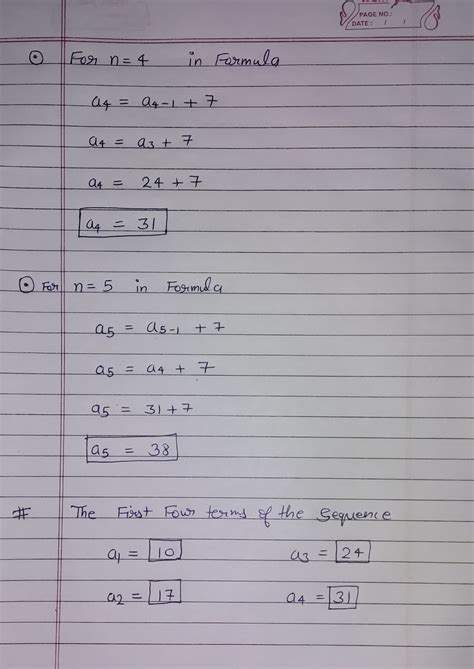 PAGE NO.:
DATE: / /
For n = 4 in Formula
a4 = a4-1 + 7
a4 = a3 + 7
a4 = 24 + 7
a4 = 31
For n = 5 in Formula
a5 = a5-1 + 7
a5 = a4 + 7
a5 = 31 + 7
a5 = 38
# The First Four terms of the Sequence
a1 = 10 a3 = 24
a2 = 17 a4 = 31